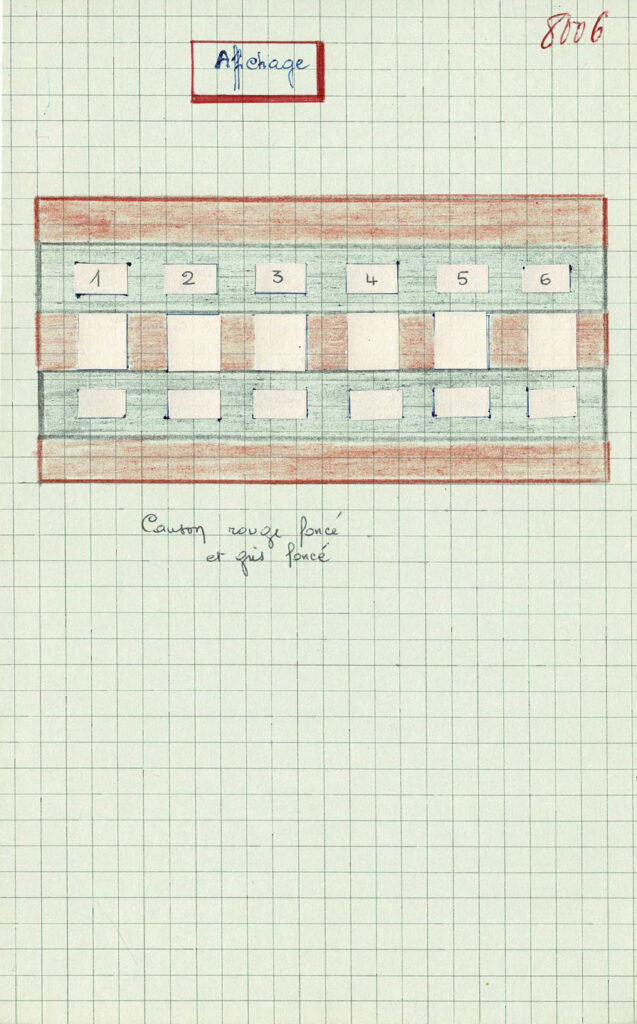 8006
Affichage
1 2 3 4 5 6
Canson rouge foncé
et gris foncé